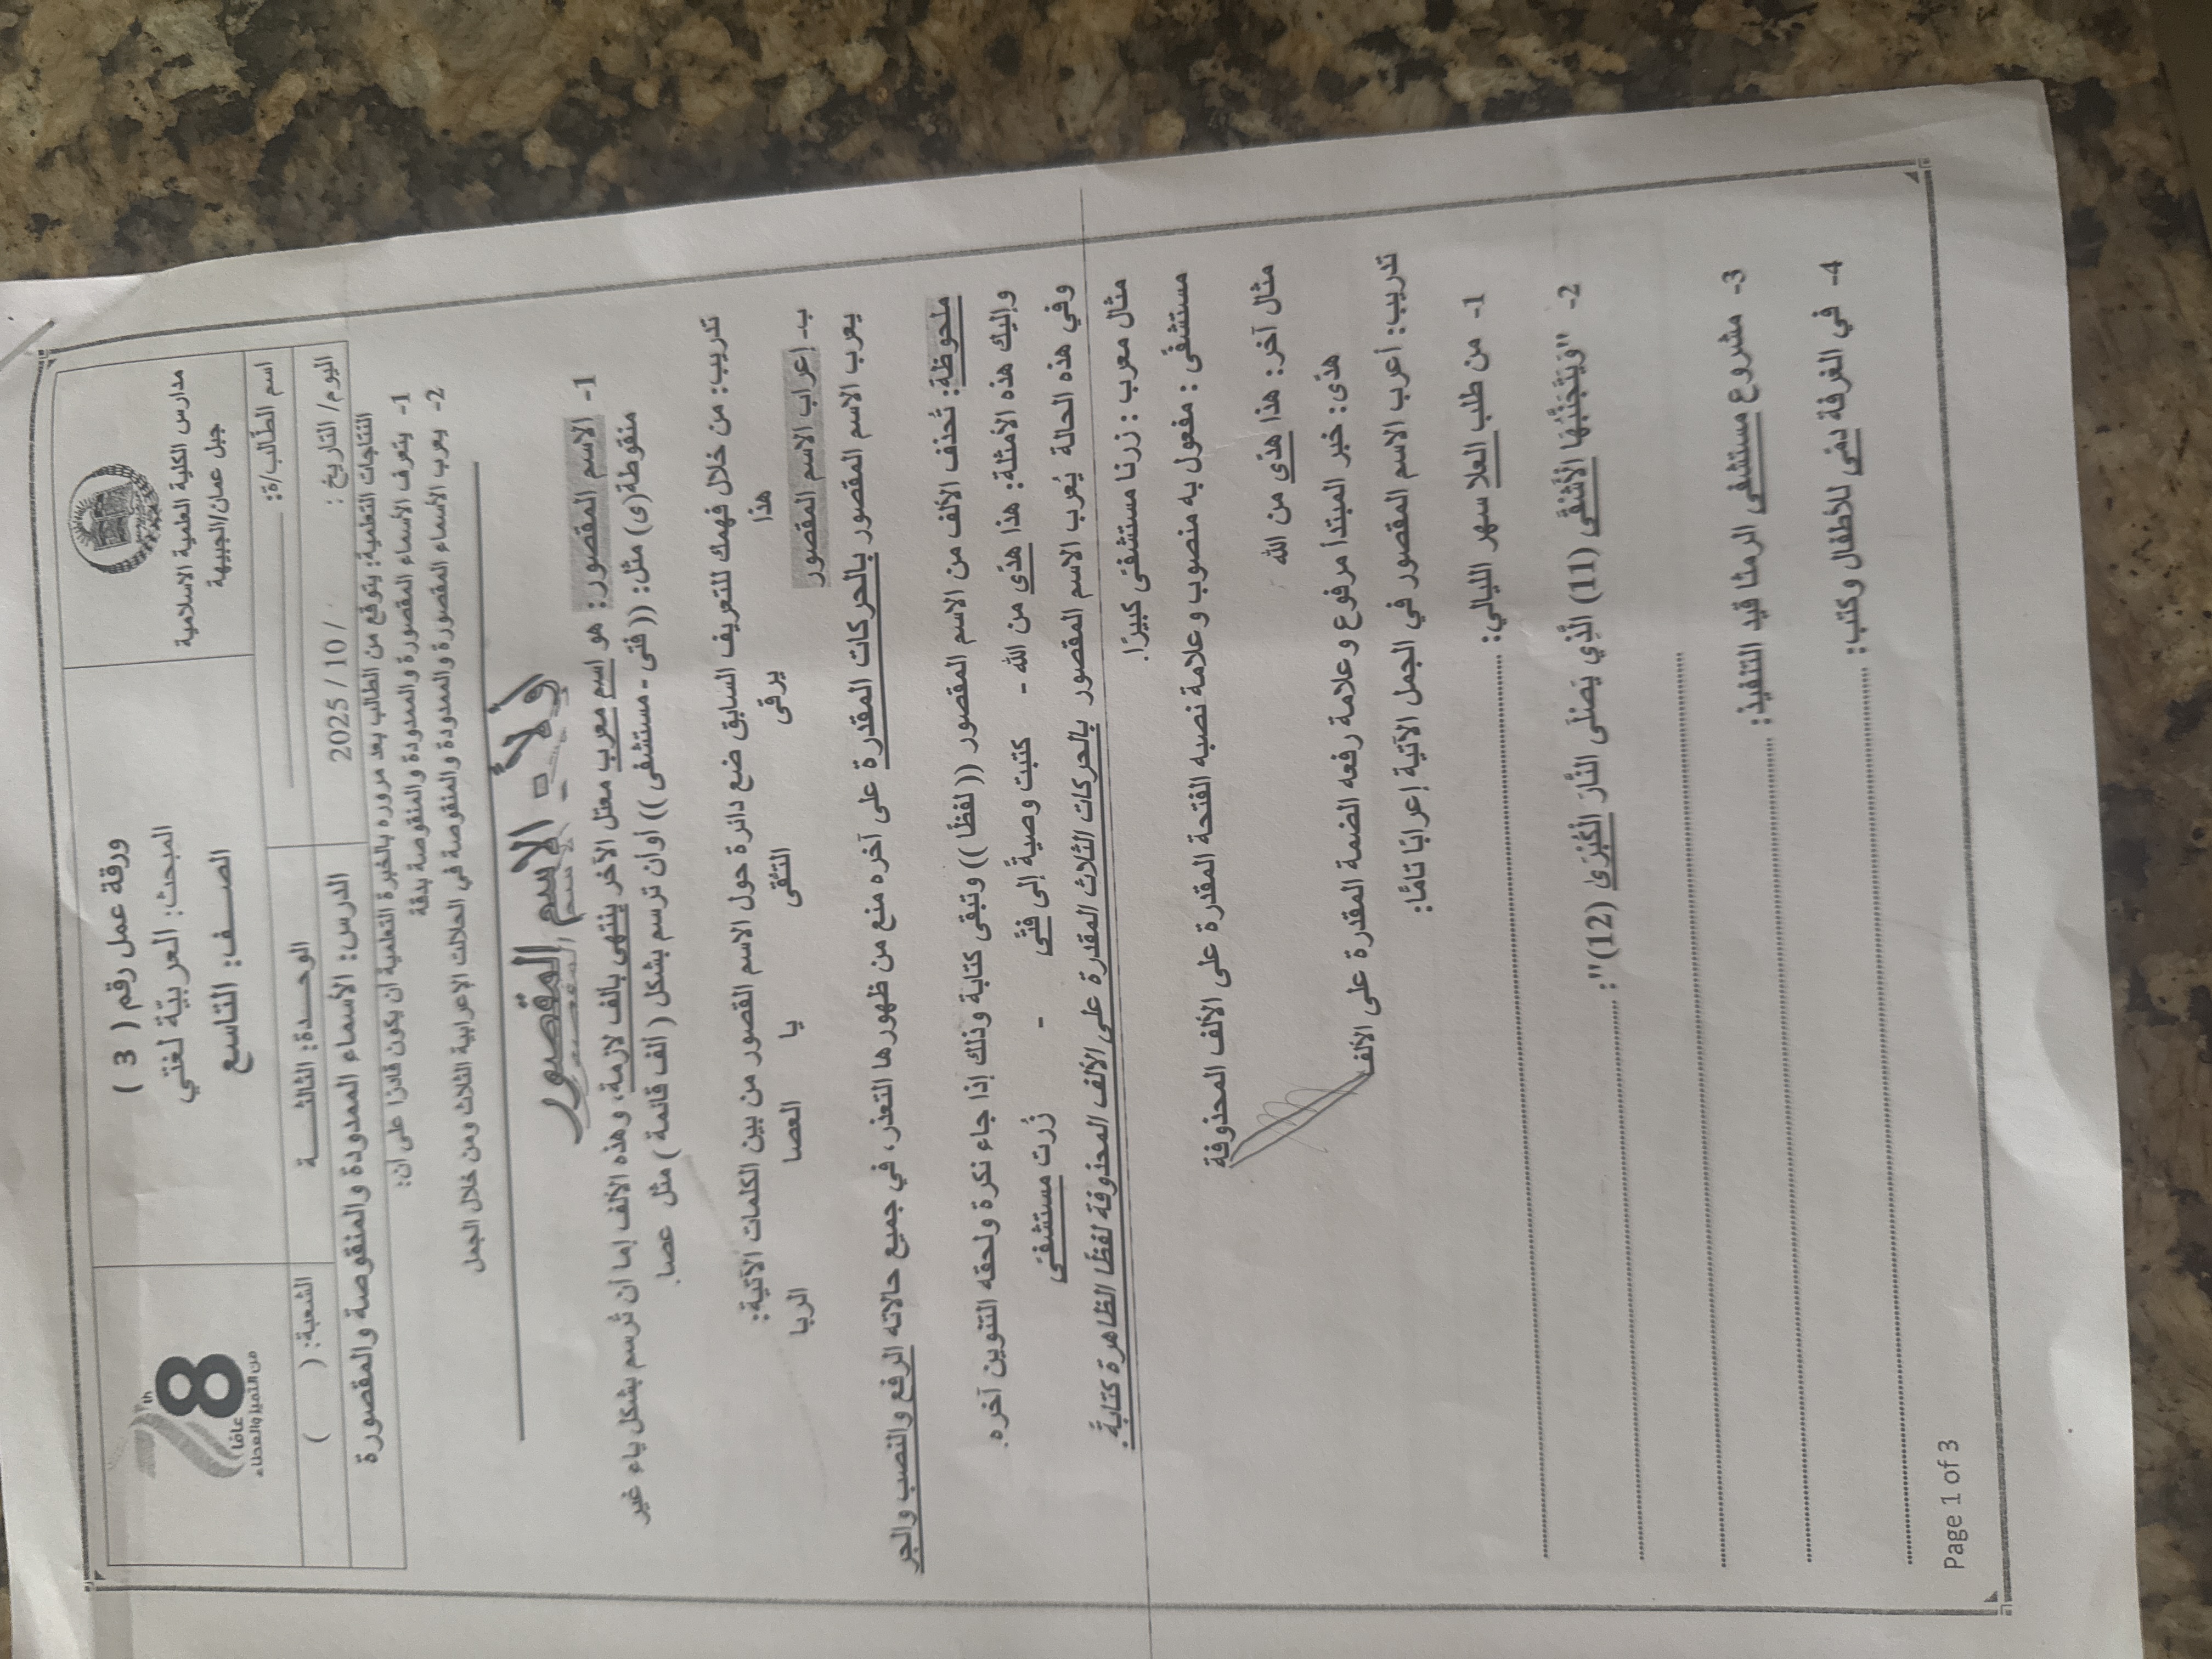 مدارس الكلية العلمية الاسلامية
جبل عمان/الجبيهة
ورقة عمل رقم ( 3 )
المبحث: العربيّة لغتي
الصـــف: التاسع
8
th
عامًا
من التميز والعطاء
اسم الطّالب/ة:
الوحـــدة: الثالثـــة
الشعبة: ( )
اليوم/ التاريخ : / 10 / 2025
الدرس: الأسماء الممدودة والمنقوصة والمقصورة
النتاجات التعلمية: يتوقع من الطالب بعد مروره بالخبرة التعلمية أن يكون قادرًا على أن:
1- يتعرف الأسماء المقصورة والممدودة والمنقوصة بدقة
2- يعرب الأسماء المقصورة والممدودة والمنقوصة في الحالات الإعرابية الثلاث ومن خلال الجمل
أولاً - الاسم المقصور
1- الاسم المقصور: هو اسم معرب معتل الآخر ينتهي بالف لازمة، وهذه الألف إما أن تُرسم بشكل ياء غير
منقوطة(ى) مثل: (( فتى - مستشفى )) أو أن ترسم بشكل ( ألف قائمة ) مثل عصا.
تدريب: من خلال فهمك للتعريف السابق ضع دائرة حول الاسم القصور من بين الكلمات الآتية:
هذا يرقى التّقى يا العصا الربا
ب- إعراب الاسم المقصور
يعرب الاسم المقصور بالحركات المقدرة على آخره منع من ظهورها التعذر، في جميع حالاته الرفع والنصب والجر
ملحوظة: تُحذف الألف من الاسم المقصور (( لفظًا )) وتبقى كتابة وذلك إذا جاء نكرة ولحقه التنوين آخره.
وإليك هذه الأمثلة: هذا هدًى من الله - كتبت وصيةً إلى فتًى - زُرت مستشفًى
وفي هذه الحالة يُعرب الاسم المقصور بالحركات الثلاث المقدرة على الألف المحذوفة لفظًا الظاهرة كتابةً.
مثال معرب : زرنا مستشفًى كبيرًا.
مستشفًى : مفعول به منصوب وعلامة نصبه الفتحة المقدرة على الألف المحذوفة
مثال آخر: هذا هدًى من الله
هدًى: خبر المبتدأ مرفوع وعلامة رفعه الضمة المقدرة على الألف
تدريب: أعرب الاسم المقصور في الجمل الآتية إعرابًا تامًّا:
1- من طلب العلا سهر الليالي:
2- "وَيَتَجَنَّبُهَا الْأَشْقَى (11) الَّذِي يَصْلَى النَّارَ الْكُبْرَىٰ (12)":
3- مشروع مستشفى الرمثا قيد التنفيذ:
4- في الغرفة دمًى للأطفال وكتب:
Page 1 of 3